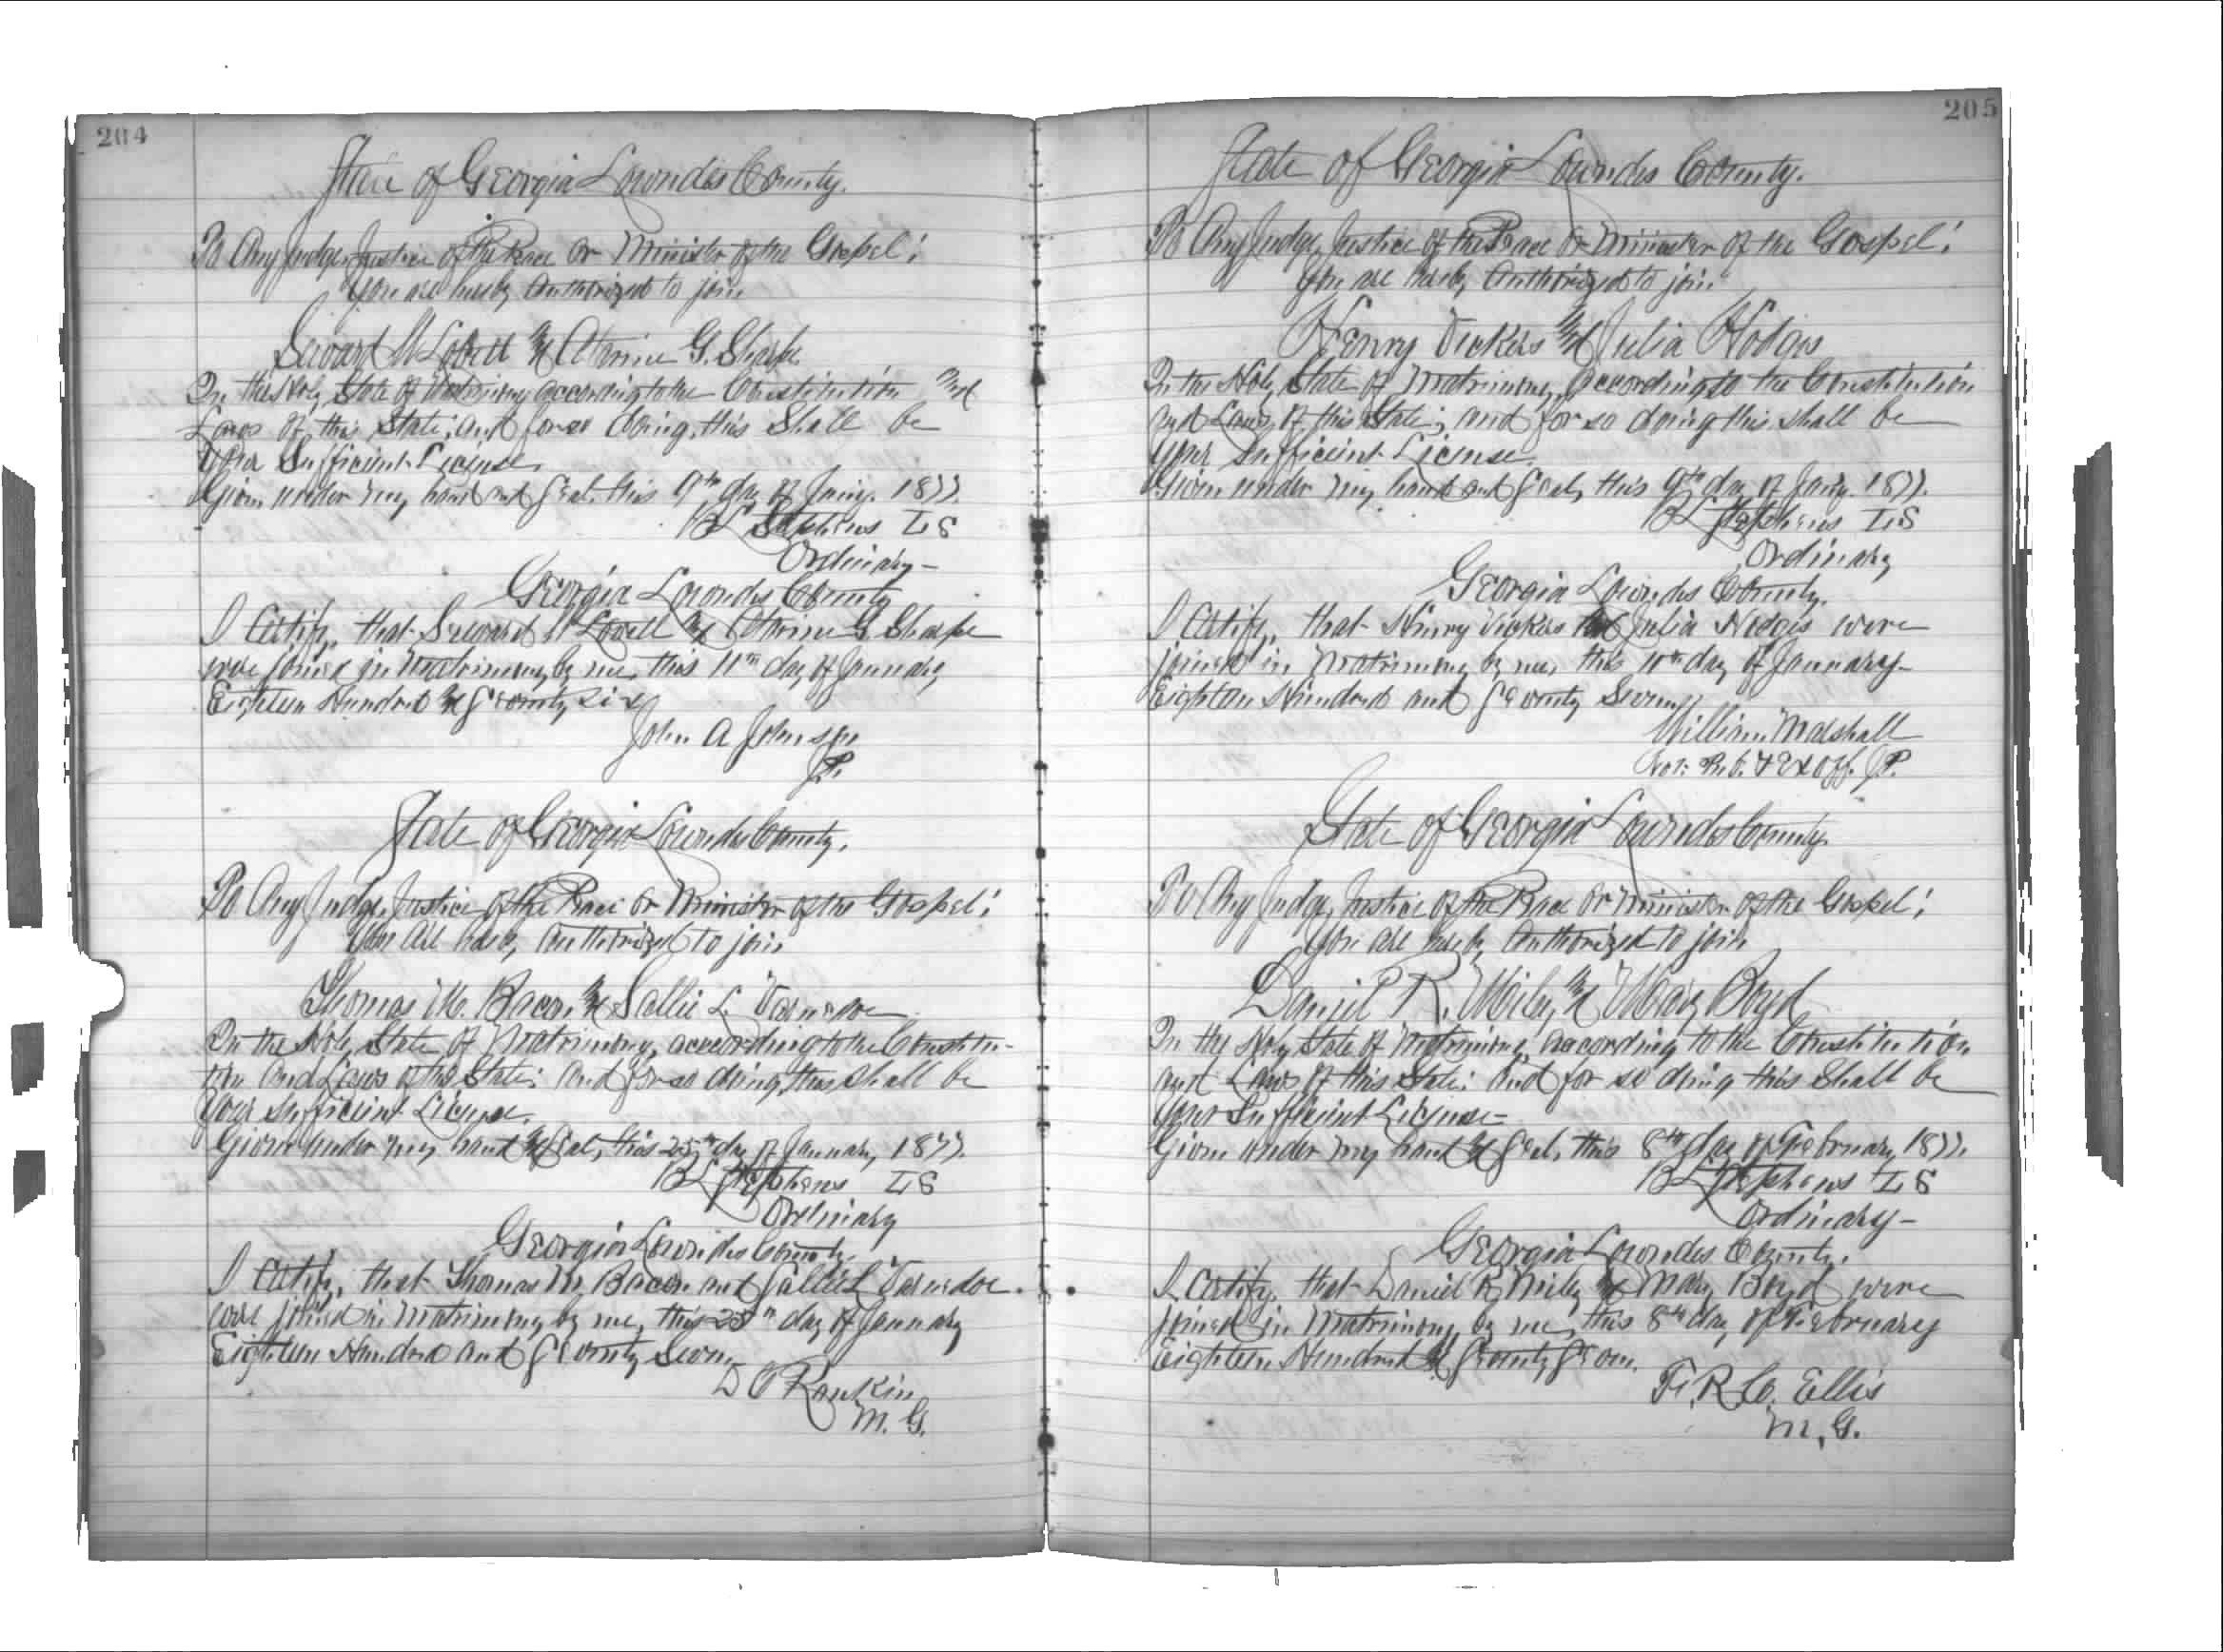 204
State of Georgia Lowndes County.
To Any Judge, Justice of the Peace or Minister of the Gospel:
You are hereby authorized to join
Seward W Lovell & G. Sharpe
In the Holy State of Matrimony according to the Constitution and
Laws of this State; and for so doing, this Shall be
Your Sufficient License.
Given under my hand and Seal, this 9th day of Jany. 1877.
B L Stephens LS
Ordinary —
Georgia Lowndes County
I Certify, that Seward W Lovell & G Sharpe
were joined in Matrimony by me, this 11th day of January
Eighteen Hundred & Seventy Six
John A Johnson
J.P.
State of Georgia Lowndes County.
To Any Judge, Justice of the Peace or Minister of the Gospel:
You are hereby authorized to join
Thomas M. Bacon & Sallie L. Varnedoe
In the Holy State of Matrimony, according to the Constitu-
tion and Laws of this State; and for so doing, this shall be
Your Sufficient License.
Given under my hand & Seal, this 25th day of January 1877.
B L Stephens LS
Ordinary
Georgia Lowndes County.
I Certify, that Thomas M. Bacon and Sallie L Varnedoe
were joined in Matrimony by me, this 25th day of January
Eighteen Hundred and Seventy Seven.
D C Rankin
M. G.
205
State of Georgia Lowndes County.
To Any Judge, Justice of the Peace or Minister of the Gospel:
You are hereby Authorized to join
Henry Vickers and Julia Hodges
In the Holy State of Matrimony, according to the Constitution
and Laws of this State; and for so doing this shall be
your Sufficient License.
Given under my hand and Seal, this 9th day of Jany. 1877.
B L Stephens LS
Ordinary
Georgia Lowndes County.
I Certify, that Henry Vickers and Julia Hodges were
joined in Matrimony by me, this 10th day of January
Eighteen Hundred and Seventy Seven
William Marshall
Not. Pub. & Ex Off. J.P.
State of Georgia Lowndes County
To Any Judge, Justice of the Peace or Minister of the Gospel:
You are hereby Authorized to join
Daniel R. Wiley & Mary Boyd
In the Holy State of Matrimony, according to the Constitution
and Laws of this State; and for so doing this Shall be
your Sufficient License —
Given under my hand & Seal, this 8th day of February 1877.
B L Stephens LS
Ordinary —
Georgia Lowndes County.
I Certify, that Daniel R. Wiley & Mary Boyd were
joined in Matrimony by me, this 8th day of February
Eighteen Hundred & Seventy Seven.
F. R. C. Ellis
M. G.